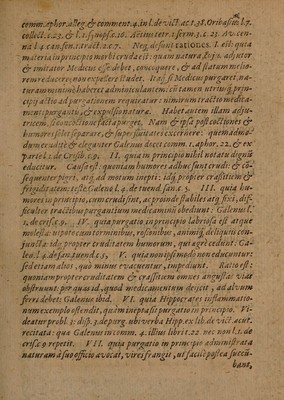 comm. aphor. alleg. & comment. 4. in l. de vict. ac. t. 38. Oribasius l. 7.
collect. c. 23. & l. 1. synops. c. 10. Aetius tetr. 1. serm. 3. c. 23. Avicenna
l. 4. can. fen. 1. tract. 2. c. 7. Neg. adsunt rationes. I. est: quia
materia in principio morbi cruda est: quam natura, seu adjutor
& imitator Medicus est: debet, concoquere, & ad statum melio-
rem reducere: non expellere studet. Itaq; si Medicus purgaret, na-
turam minime haberet adminiculantem: cum tamen utriusq; prin-
cipij actio ad purgationem requiratur: utriusque tractio medica-
menti purgantis, & expulsio naturae. Habet autem illam adju-
tricem, si concoctionis facta purget. Nam & ipsa post coctionem &
humores solet separare, & superfluitates excernere: quemadmo-
dum erudite & eleganter Galenus docet comm. 1. aphor. 22. & ex
parte l. 2. de Crisib. c. 9. II. quia in principio nihil notatu dignum
educitur. Causa est: quoniam humores adhuc sunt crudi: & con-
sequenter pigri, atq; ad motum inepti: idq; propter crassitiem &
frigiditatem: teste Galeno l. 4. de tuend. san. c. 5. III. quia hu-
mores in principio, cum crudi sint, ac proinde stabiles atq; fixi, dif-
ficulter tractibus purgantium medicaminum obediunt: Galenus l.
2. de cris. c. 9. IV. quia purgatio in principio labriosa est atque
molesta: utpote cum torminibus, rosionibus, animiq; deliquiis con-
juncta: idq; propter cruditatem humorum, qui aegre cedunt: Ga-
lenus l. 4. de san. tuend. c. 5. V. quia non ipsi modo non educuntur
sed etiam alii, quo minus evacuentur, impediunt. Ratio est:
quoniam propter cruditatem & crassitiem omnes angustas vias
obstruunt: per quas id, quod medicamentum dejicit, ad alvum
ferri debet: Galenus ibid. VI. quia Hippocrates inflammatio-
num exemplo ostendit, quam inepta sit purgatio in principio. Vi-
deatur probl. 3. disp. 3. de purg. ubi verba Hipp. ex lib. de vict. acut.
recitata: qua Galenus in comm. 4. illius libri t. 22. nec non l. 1. de
crisib. c. 8. repetit. VII. quia purgatio in principio administrata
naturam a suo officio avocat, vires frangit, ut facile postea succu-
bant,